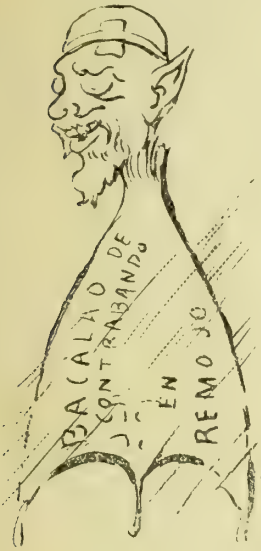 BACALAO DE
CONTRABANDO
EN
REMOJO